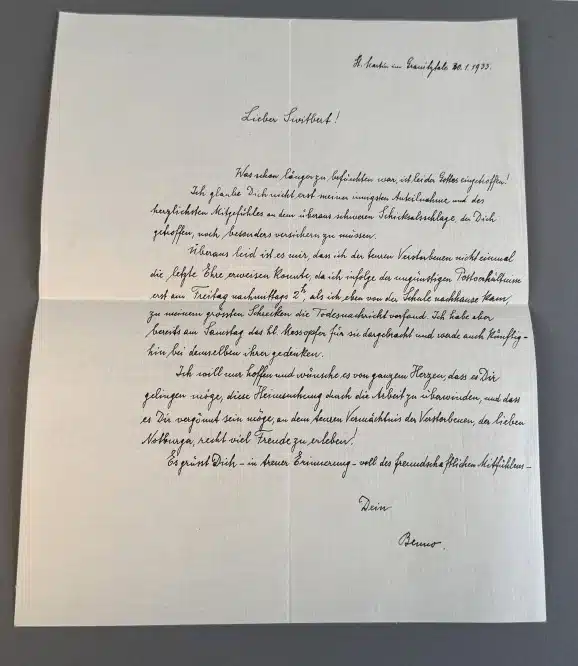 St. Martin im Granitztale 30.1.1933.
Lieber Switbert!
Was schon länger zu befürchten war, ist leider Gottes eingetroffen!
Ich glaube Dich nicht erst meiner innigsten Anteilnahme und des
herzlichsten Mitgefühles an dem überaus schweren Schicksalsschlage, der Dich
getroffen, noch besonders versichern zu müssen.
Überaus leid ist es mir, dass ich der teuren Verstorbenen nicht einmal
die letzte Ehre erweisen konnte, da ich infolge der ungünstigen Postverhältnisse
erst am Freitag nachmittags 2h, als ich eben von der Schule nachhause kam,
zu meinem grössten Schrecken die Todesnachricht vorfand. Ich habe aber
bereits am Samstag das hl. Messopfer für sie dargebracht und werde auch künftig-
hin bei demselben ihrer gedenken.
Ich will nur hoffen und wünsche es von ganzem Herzen, dass es Dir
gelingen möge, diese Heimsuchung durch die Arbeit zu überwinden, und dass
es Dir vergönnt sein möge, an dem teuren Vermächtnis der Verstorbenen, der lieben
Notburga, recht viel Freude zu erleben!
Es grüsst Dich – in treuer Erinnerung – voll des freundschaftlichen Mitfühlens –
Dein
Benno.